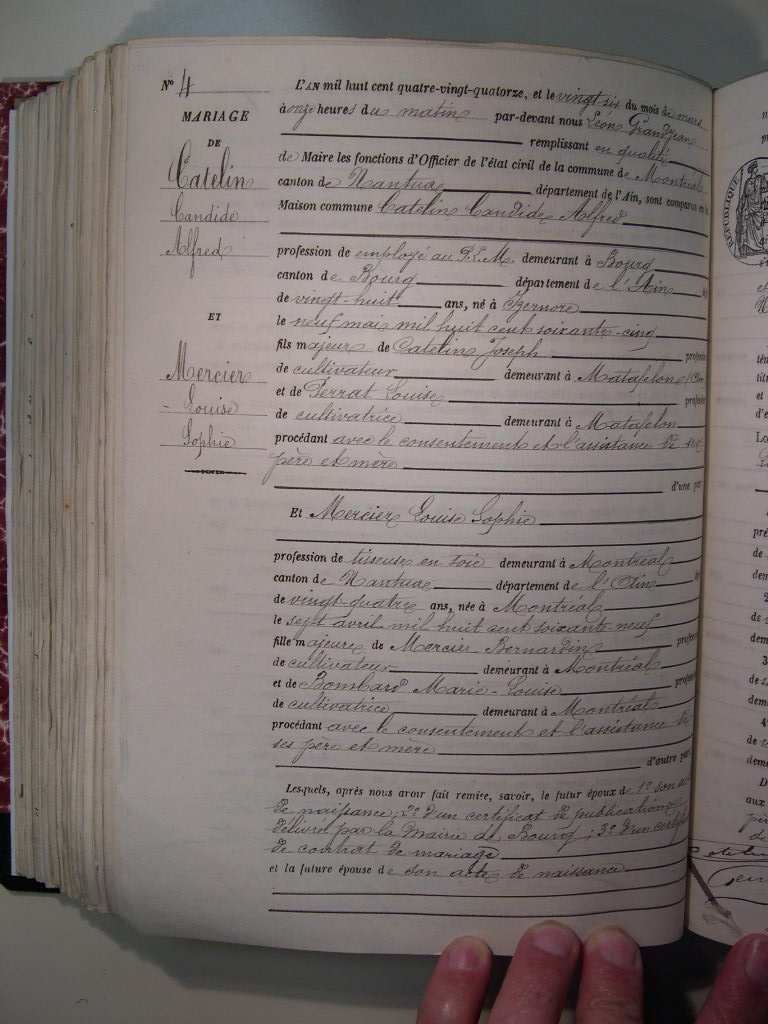 N° 4
MARIAGE
DE
Catelin
Candide
Alfred
ET
Mercier
Louise
Sophie
L'AN mil huit cent quatre-vingt-quatorze, et le vingt six du mois de mars
à onze heures du matin par-devant nous Léon Grandjean
remplissant en qualité
de Maire les fonctions d'Officier de l'état civil de la commune de Montréal
canton de Nantua département de l'Ain, sont comparus en la
Maison commune Catelin Candide Alfred
profession de employé au P.L.M. demeurant à Bourg
canton de Bourg département de l'Ain
de vingt-huit ans, né à Bernore
le neuf mai mil huit cent soixante-cinq
fils majeur de Catelin Joseph
de cultivateur demeurant à Matafelon
et de Perrat Louise
de cultivatrice demeurant à Matafelon
procédant avec le consentement et l'assistance de ses
père et mère
d'une par
Et Mercier Louise Sophie
profession de tisseuse en soie demeurant à Montréal
canton de Nantua département de l'Ain
de vingt-quatre ans, née à Montréal
le sept avril mil huit cent soixante-neuf
fille majeure de Mercier Bernardin
de cultivateur demeurant à Montréal
et de Bombard Marie-Louise
de cultivatrice demeurant à Montréal
procédant avec le consentement et l'assistance de
ses père et mère
d'autre par
Lesquels, après nous avoir fait remise, savoir, le futur époux de 1° son
de naissance; 2° d'un certificat de publications
délivré par la Mairie de Bourg; 3° d'un certifi
de contrat de mariage
et la future épouse de son acte de naissance
REPUBLIQUE